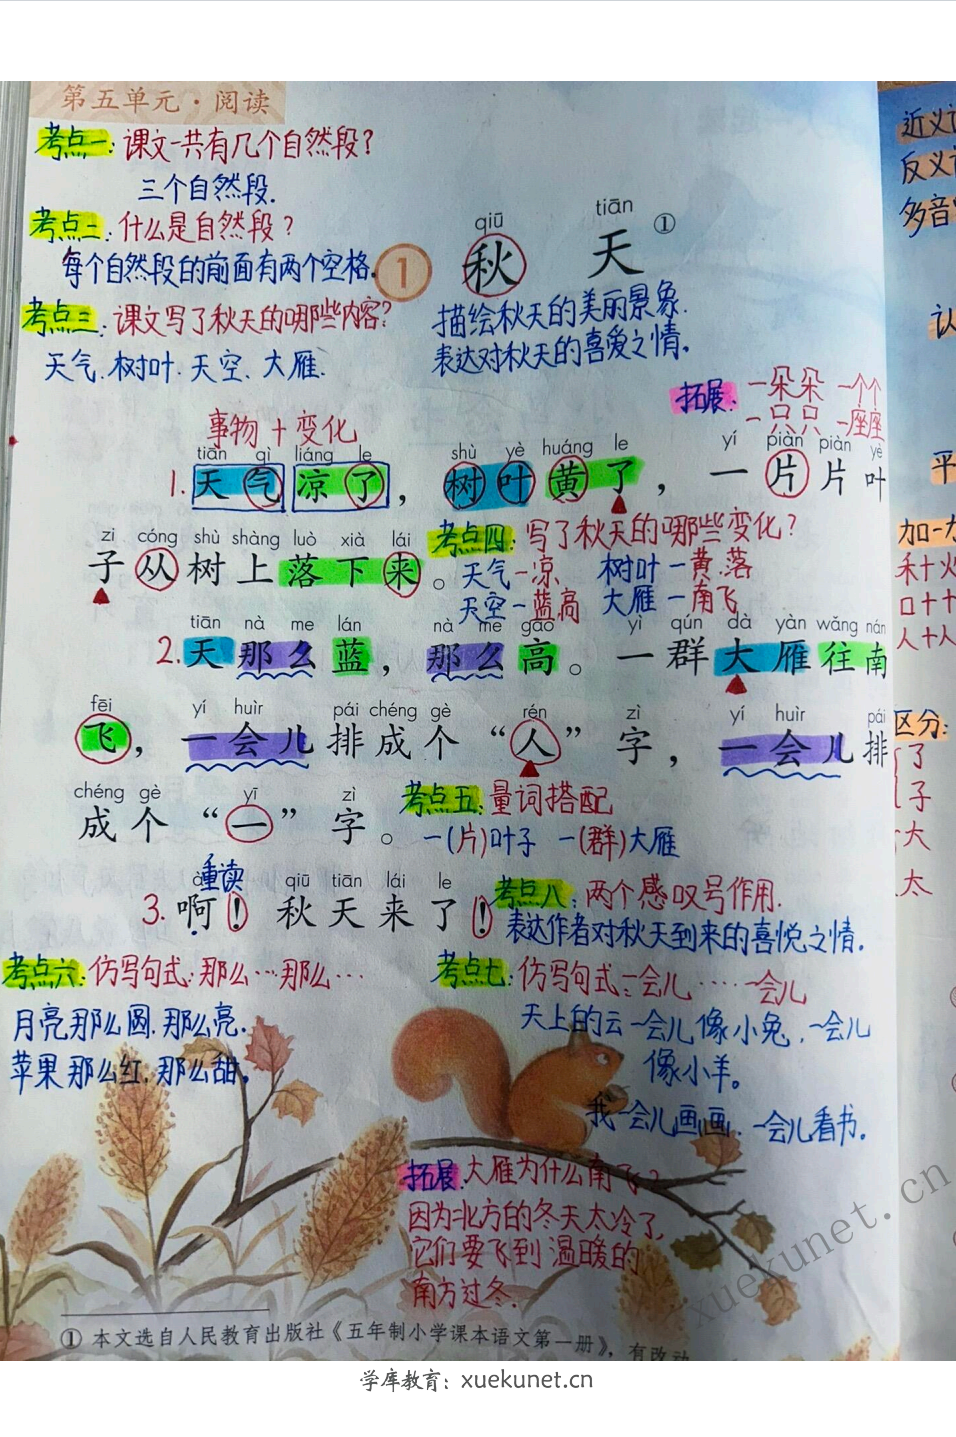 第五单元·阅读
考点一:课文一共有几个自然段?
三个自然段.
考点二:什么是自然段?
每个自然段的前面有两个空格.
qiū tiān
1 秋天①
描绘秋天的美丽景象.
表达对秋天的喜爱之情。
考点三:课文写了秋天的哪些内容?
天气.树叶.天空、大雁.
拓展:一朵朵 一个个
一只只 一座座
事物+变化
tiān qì liáng le shù yè huáng le yí piàn piàn yè
1.天气凉了，树叶黄了，一片片叶
zi cóng shù shàng luò xià lái
子从树上落下来。
考点四:写了秋天的哪些变化?
天气—凉 树叶—黄.落
天空—蓝高 大雁—南飞
tiān nà me lán nà me gāo yì qún dà yàn wǎng nán
2.天那么蓝，那么高。一群大雁往南
fēi yí huìr pái chéng gè rén zì yí huìr pái
飞，一会儿排成个“人”字，一会儿排
chéng gè yī zì
成个“一”字。
考点五:量词搭配
一(片)叶子 一(群)大雁
重读
qiū tiān lái le
3.啊！秋天来了！
考点八:两个感叹号作用.
表达作者对秋天到来的喜悦之情.
考点六:仿写句式:那么…那么…
月亮那么圆.那么亮.
苹果那么红.那么甜。
考点七:仿写句式:一会儿……一会儿
天上的云一会儿像小兔，一会儿
像小羊。
我一会儿画画、一会儿看书.
拓展.大雁为什么南飞?
因为北方的冬天太冷了,
它们要飞到温暖的
南方过冬.
① 本文选自人民教育出版社《五年制小学课本语文第一册》，有改动
近义
反义
多音
认
平
加一
禾+火
口+十
人+人
区分:
了
子
大
太
xuekunet.cn
学库教育：xuekunet.cn